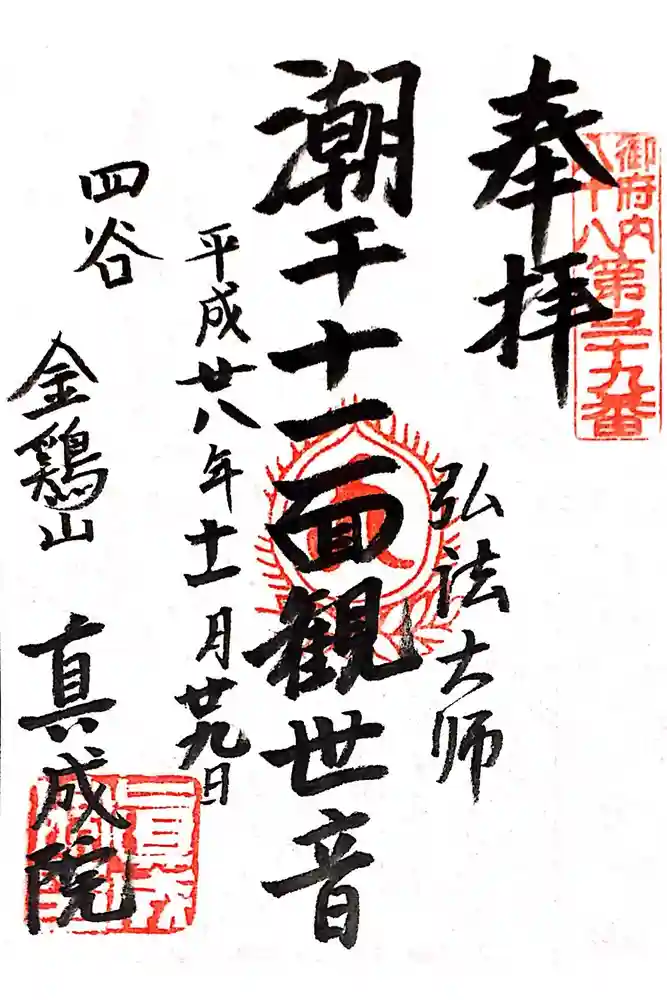 御府内
八十八
第三十九番
奉拝
弘法大师
潮干十一面観世音
平成廿八年十一月廿九日
四谷 金鶏山 真成院